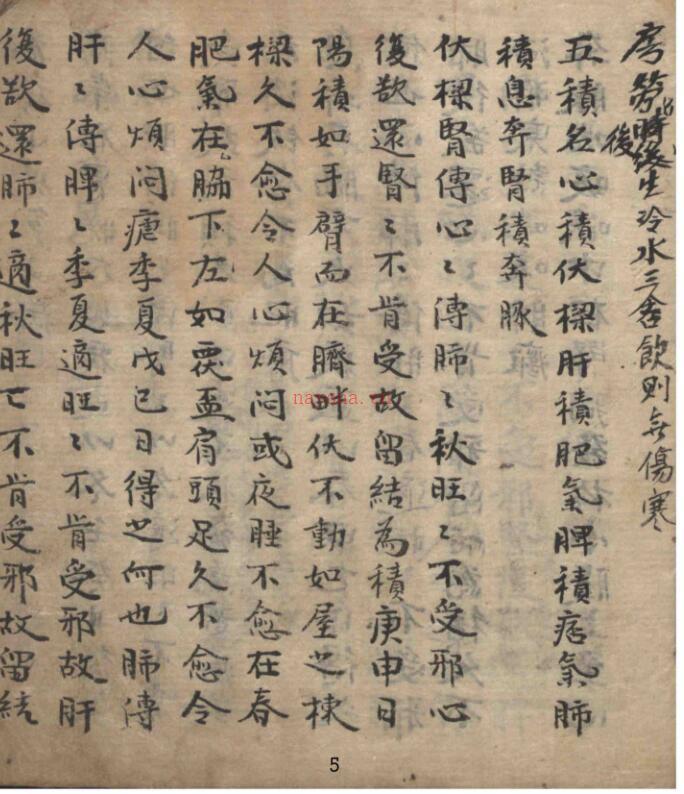 房勞時後生冷水三舍飲則無傷寒
五積名心積伏樑肝積肥氣脾積痞氣肺
積息奔腎積奔豚
伏樑腎傳心〻傳肺〻秋旺〻不受邪心
後欲還腎〻不肯受故留結為積庚申日
陽積如手臂而在臍畔伏不動如屋之棟
樑久不愈令人心煩悶或夜睡不愈在春
肥氣在脇下左如覆盃肩頭足久不愈令
人心煩悶瘧季夏戊己日得之何也肺傳
肝〻傳脾〻季夏適旺〻不肯受邪故肝
後欲還肺〻適秋旺亡不肯受邪故留結
5